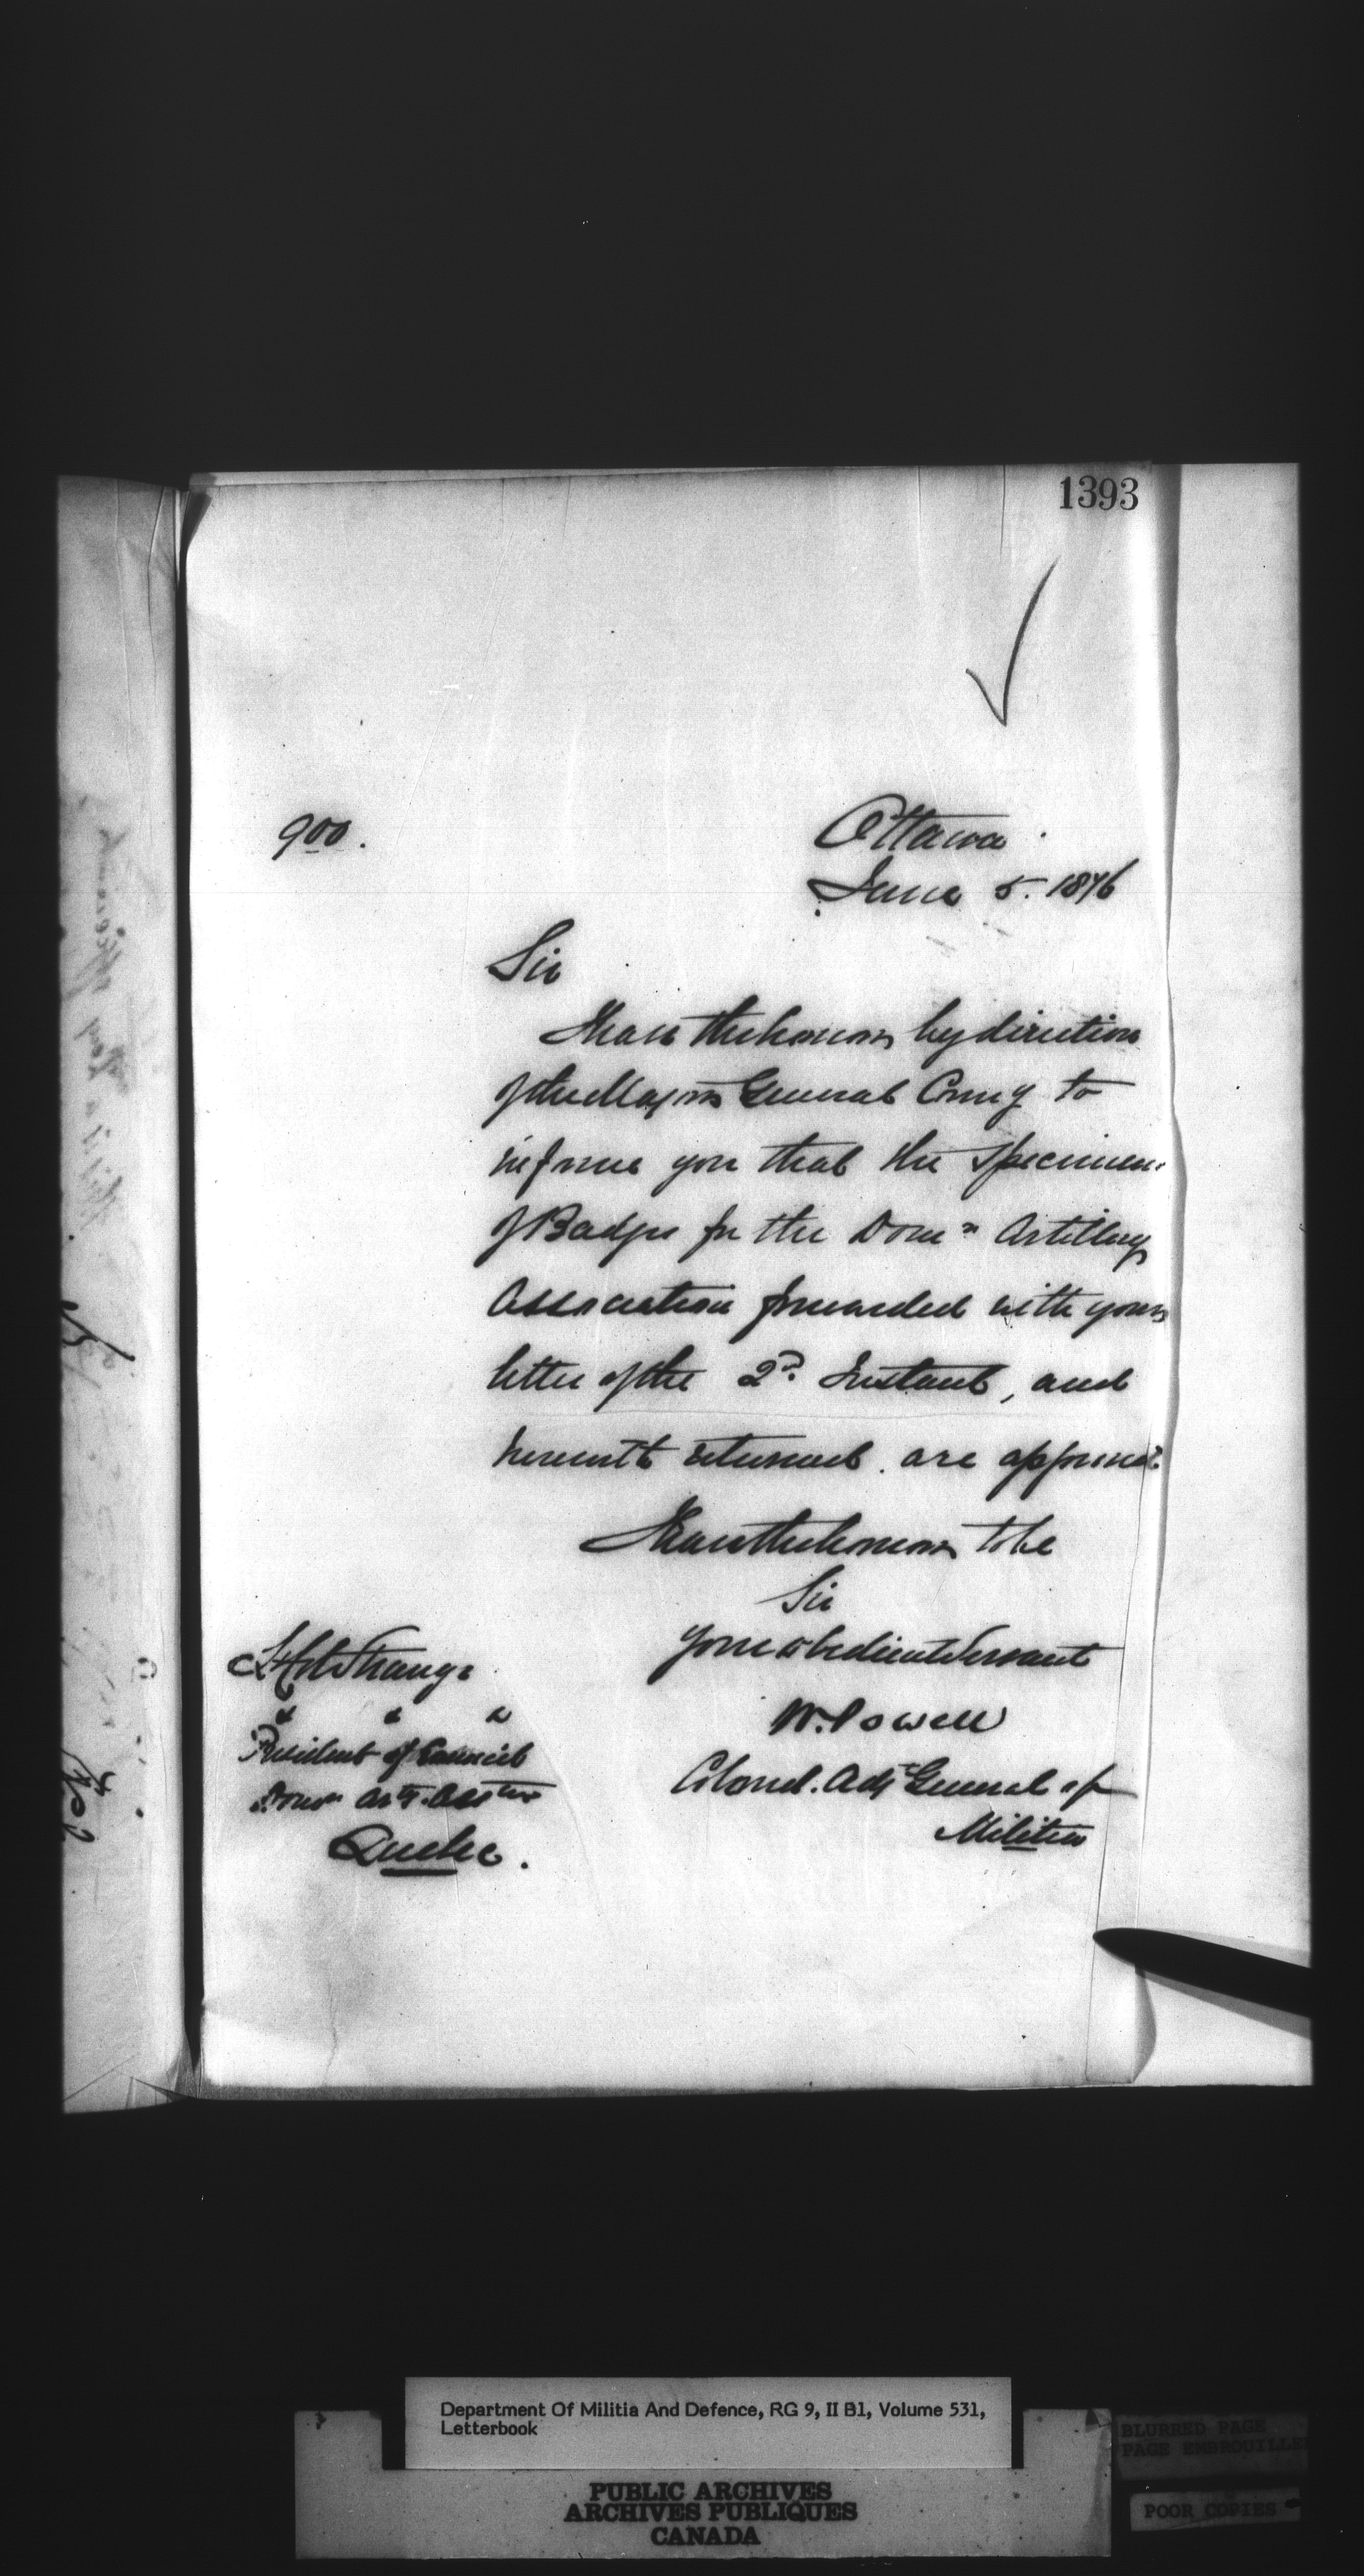 1393
900.
Ottawa
June 5. 1876
Sir
I have the honor by direction
of the Major General Comg to
inform you that the Specimens
of Badges for the Domn Artillery
Association forwarded with your
letter of the 2d Instant, and
herewith returned. are approved
I have the honor to be
Sir
Your obedient Servant
W. Powell
Colonel. Adjt General of
Militia
Lt Col Strange
& & &
President of Council
Domn Arty. Asstn
Quebec.
Department Of Militia And Defence, RG 9, II B1, Volume 531,
Letterbook
PUBLIC ARCHIVES
ARCHIVES PUBLIQUES
CANADA
BLURRED PAGE
PAGE EMBROUILLE
POOR COPIES